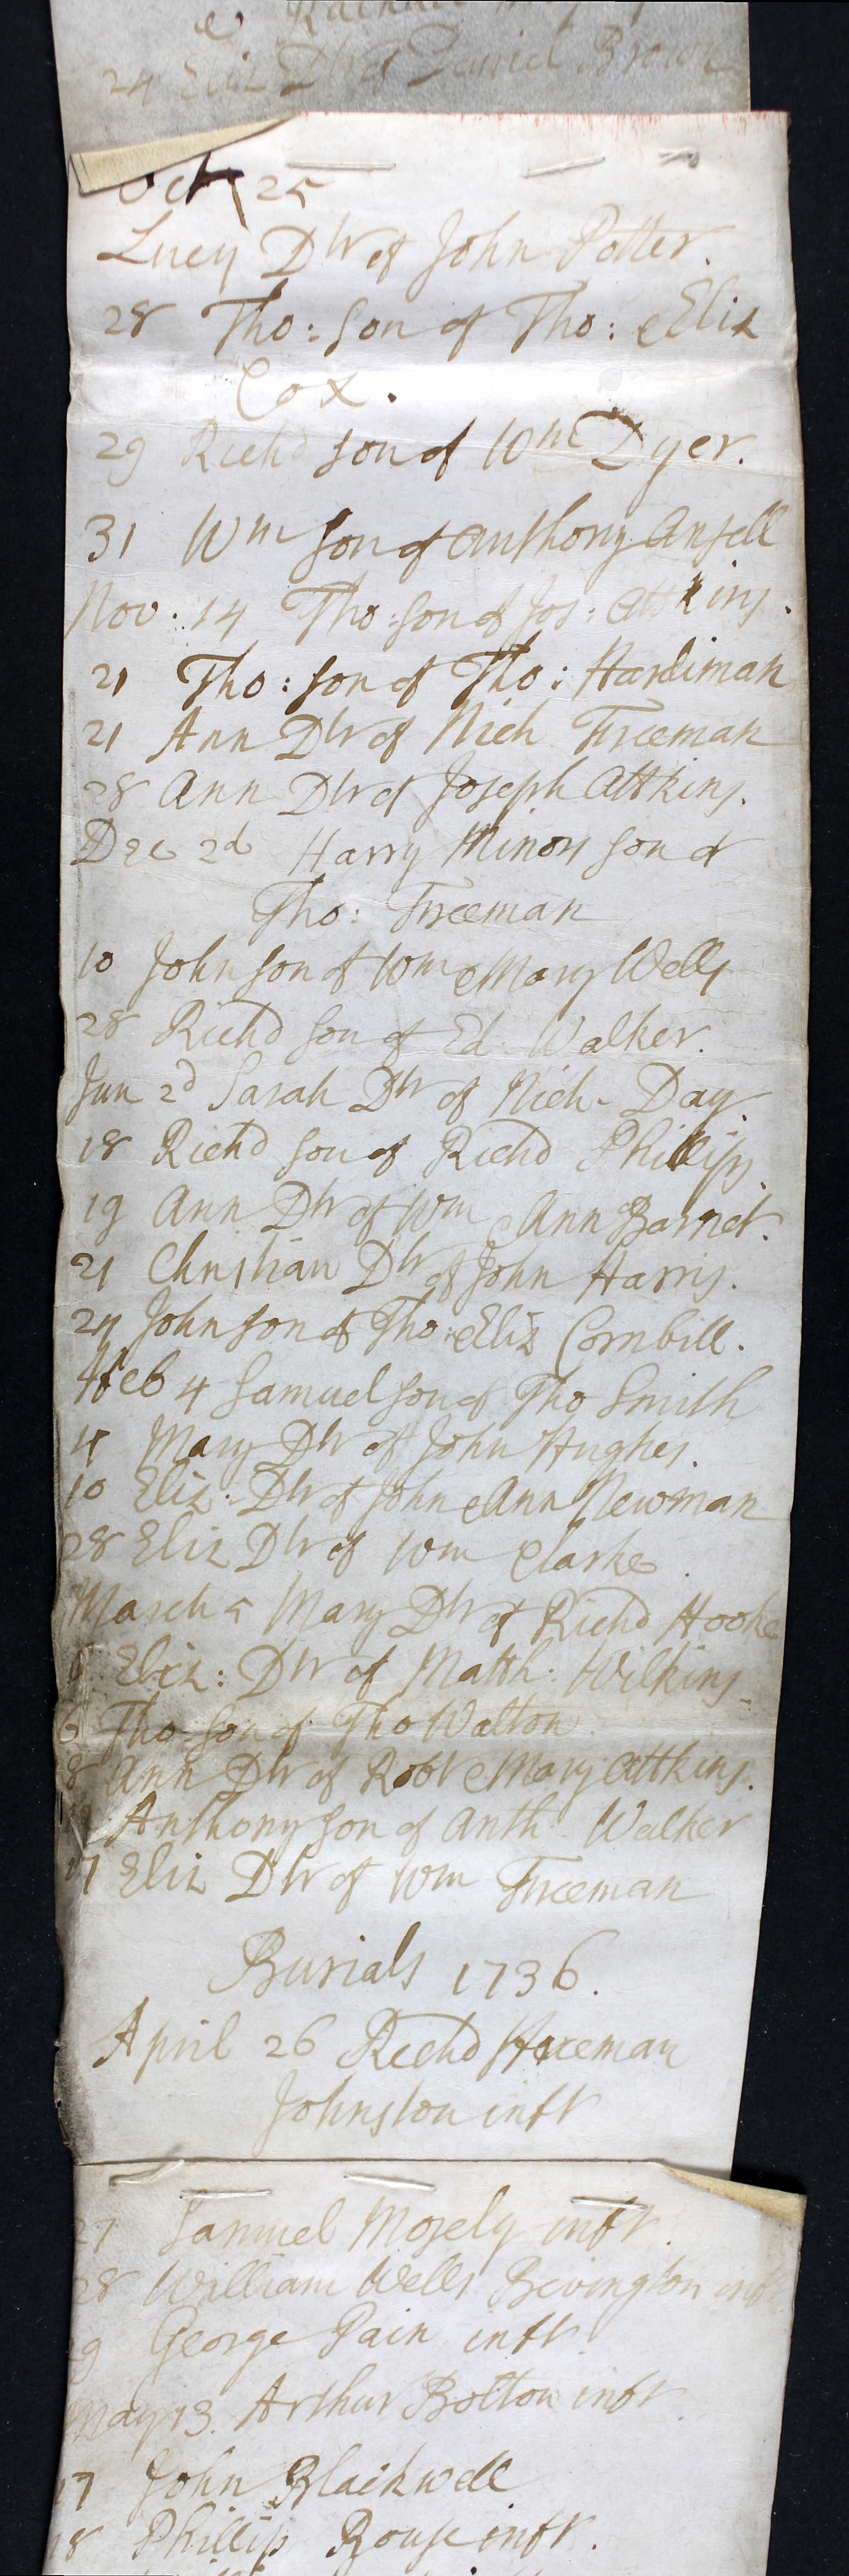 24 Eliz Dtr of Daniel Brown
Octr 25
Lucy Dtr of John Potter.
28 Tho: son of Tho: & Eliz
Cox.
29 Richd son of Wm Dyer.
31 Wm son of Anthony Ansell
Nov. 14 Tho: son of Jos: Attkins.
21 Tho: son of Tho: Hardiman
21 Ann Dtr of Nich Freeman
28 Ann Dtr of Joseph Attkins.
Dec 2d Harry Minors son of
Tho: Freeman
10 John son of Wm & Mary Wells
28 Richd son of Ed Walker.
Jan 2d Sarah Dtr of Nich. Day.
18 Richd son of Richd Phillips
19 Ann Dtr of Wm & Ann Barnet.
21 Christian Dtr of John Harris.
24 John son of Tho: & Eliz Cornbill.
Feb 4 Samuel son of Tho Smith
4 Mary Dtr of John Hughes.
10 Eliz. Dtr of John & Ann Newman
28 Eliz Dtr of Wm Clarke.
March 5 Mary Dtr of Richd Hooke
Eliz: Dtr of Matth: Wilkins.
6 Tho son of Tho Walton.
8 Ann Dtr of Robt & Mary Attkins.
Anthony son of Anth Walker
17 Eliz Dtr of Wm Freeman
Burials 1736.
April 26 Richd Freeman
Johnston inft
27 Samuel Mosely inft.
28 William Wells Bevington inft
9 George Pain inft.
May 13. Arthur Bolton inft.
17 John Blackwell
18 Phillip Rouse inft.